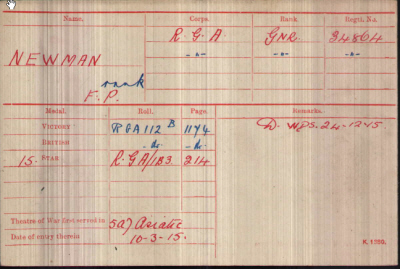 Name. Corps. Rank Regtl. No.
NEWMAN R.G.A. GNR 34864
-"- -"- -"-
F.P.
Medal. Roll. Page. Remarks.
VICTORY RGA 112 B 1174 D. WDS. 24-12-15
BRITISH -do- -do-
15 STAR R.G.A/18B 214
Theatre of War first served in (5a) Asiatic
Date of entry therein 10-3-15.
K. 1380.